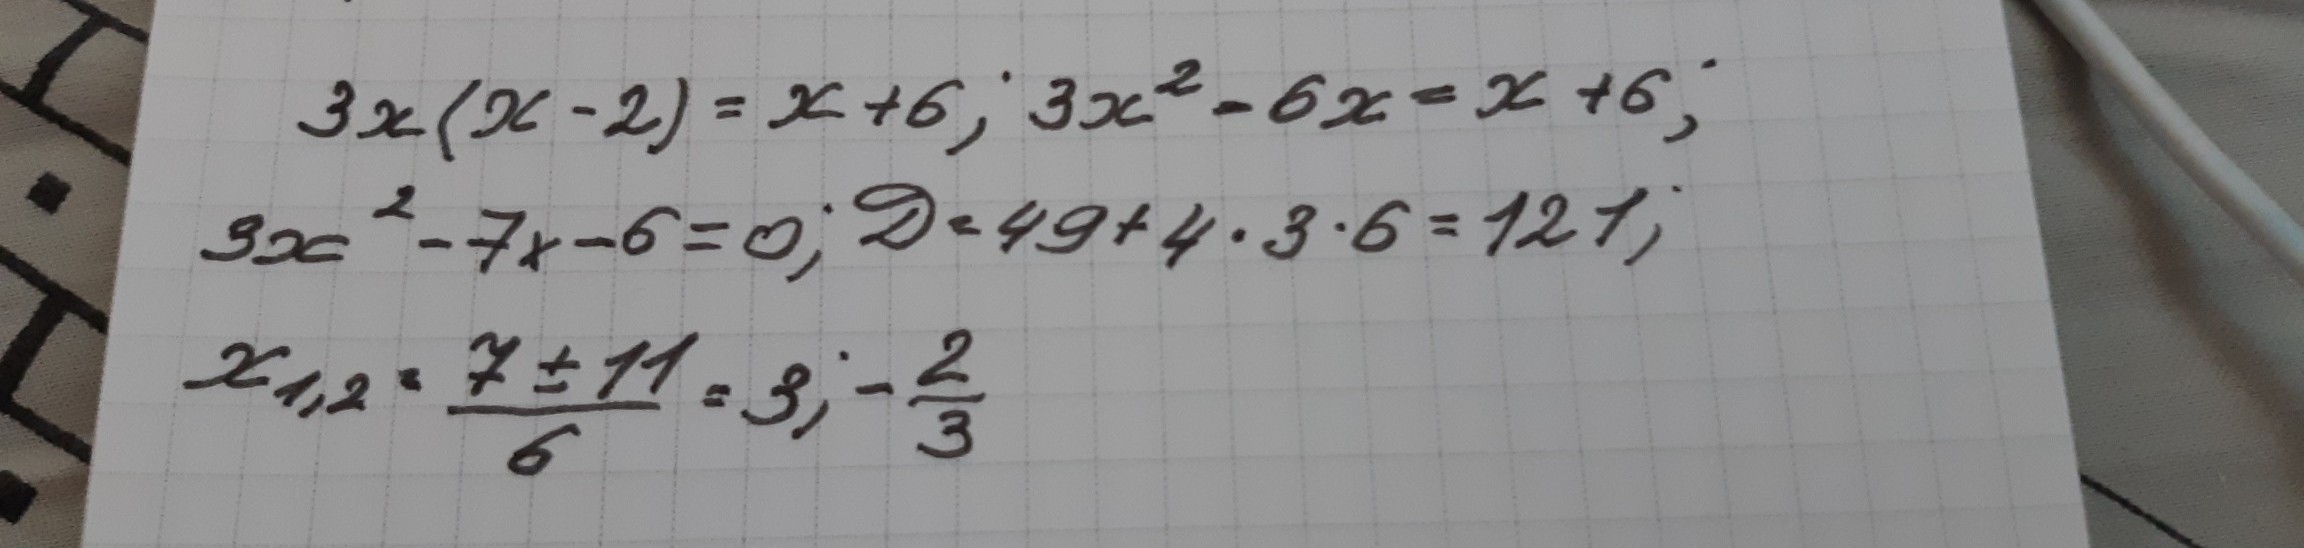 3x(x-2)=x+6; 3x²-6x=x+6;
3x²-7x-6=0; D=49+4·3·6=121;
x₁,₂=(7±11)/6=3; -2/3